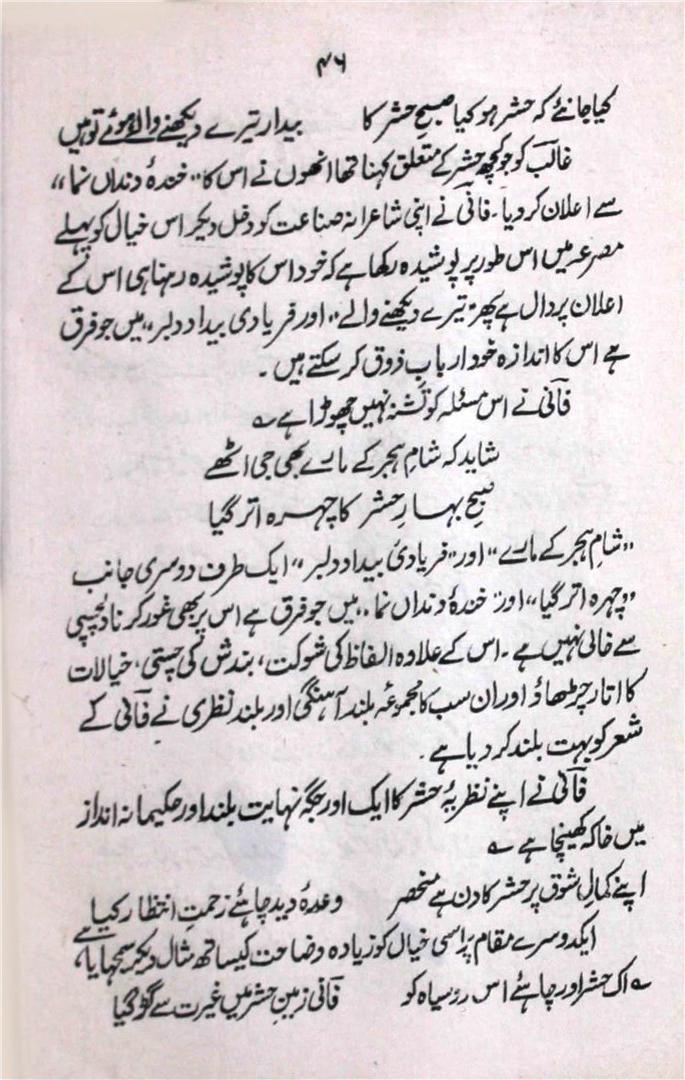 ۴۶
کیا جانئے کہ حشر ہو کیا صبحِ حشر کا بیدار تیرے دیکھنے والے ہوئے تو ہیں
غالبؔ کو جو کچھ حشر کے متعلق کہنا تھا انھوں نے اس کا "خندۂ دنداں نما"
سے اعلان کر دیا۔ فانیؔ نے اپنی شاعرانہ صناعت کو دخل دیکر اس خیال کو پہلے
مصرعہ میں اس طور پر پوشیدہ رکھا ہے کہ خود اس کا پوشیدہ رہنا ہی اس کے
اعلان پر دال ہے پھر "تیرے دیکھنے والے" اور فریادیٔ بیداد دلبر" میں جو فرق
ہے اس کا اندازہ خود اربابِ ذوق کر سکتے ہیں۔
فانیؔ نے اس مسئلہ کو تشنہ نہیں چھوڑا ہے ؎
شاید کہ شامِ ہجر کے مارے بھی جی اٹھے
صبحِ بہارِ حشر کا چہرہ اتر گیا
"شامِ ہجر کے مارے" اور "فریادیٔ بیداد دلبر" ایک طرف دوسری جانب
"چہرہ اتر گیا" اور "خندۂ دنداں نما" میں جو فرق ہے اس پر بھی غور کرنا دلچسپی
سے خالی نہیں ہے۔ اس کے علاوہ الفاظ کی شوکت، بندش کی چستی، خیالات
کا اتار چڑھاؤ اور ان سب کا مجموعہ بلند آہنگی اور بلند نظری نے فانیؔ کے
شعر کو بہت بلند کر دیا ہے۔
فانیؔ نے اپنے نظریۂ حشر کا ایک اور جگہ نہایت بلند اور حکیمانہ انداز
میں خاکہ کھینچا ہے ؎
اپنے کمالِ شوق پر حشر کا دن ہے منحصر وعدۂ دید چاہئے زحمتِ انتظار کیا
ایکدوسرے مقام پر اسی خیال کو زیادہ وضاحت کیساتھ مثال دیکر سمجھایا ہے
؎ اک حشر اور چاہئے اس روسیاہ کو فانی زمینِ حشر میں غیرت سے گڑ گیا